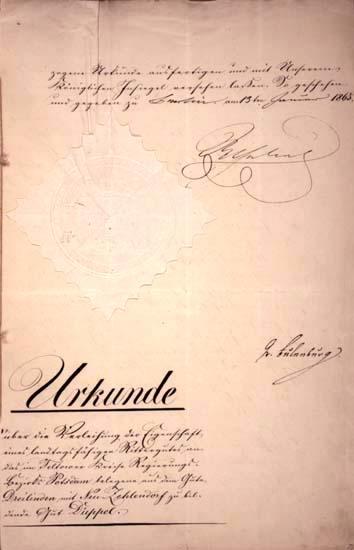 zogene Urkunde ausfertigen und mit Unserem
Königlichen Insiegel versehen lassen. So geschehen
und gegeben zu Berlin, am 13ten Januar 1865.
Gr. Eulenburg
Urkunde
über die Verleihung der Eigenschaft
eines landtagsfähigen Rittergutes an
das im Teltower Kreise Regierungs-
Bezirks Potsdam belegene aus dem Gute
Dreilinden mit Neu-Zehlendorf zu bil-
dende Gut Düppel.